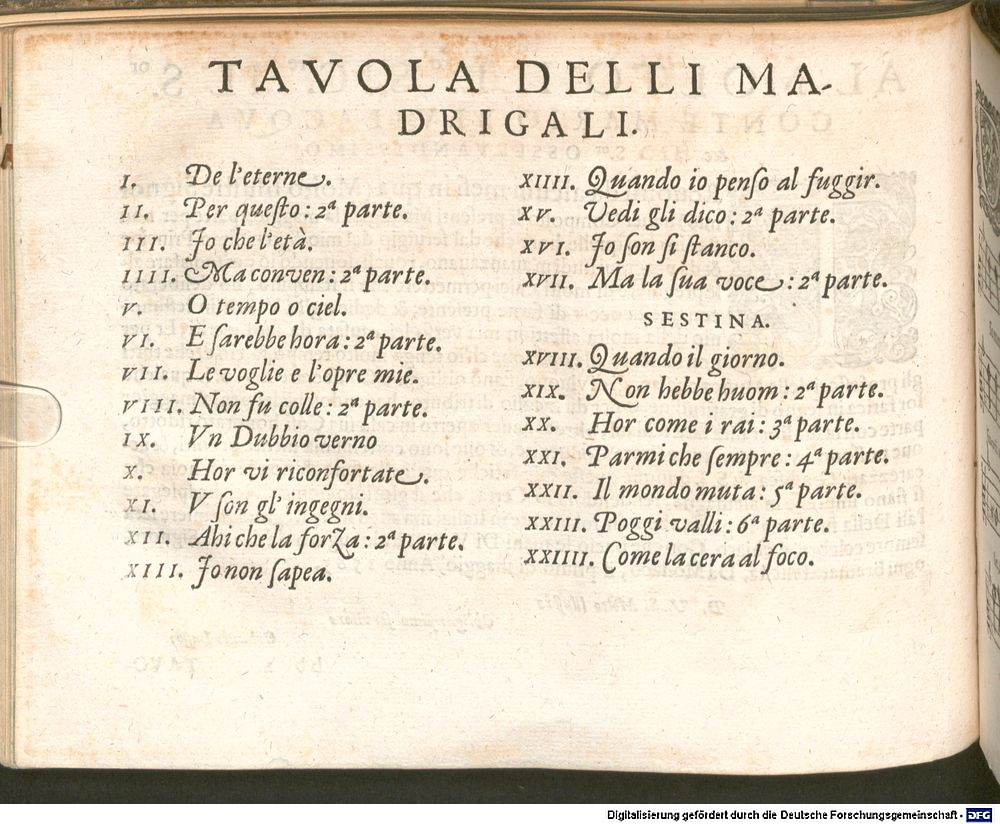 TAVOLA DELLI MA-
DRIGALI.
I. De l'eterne.
II. Per queſto: 2ª parte.
III. Jo che l'età.
IIII. Ma conven: 2ª parte.
V. O tempo o ciel.
VI. E ſarebbe hora: 2ª parte.
VII. Le voglie e l'opre mie.
VIII. Non fu colle: 2ª parte.
IX. Vn Dubbio verno
X. Hor vi riconfortate.
XI. V ſon gl' ingegni.
XII. Ahi che la forza: 2ª parte.
XIII. Jo non ſapea.
XIIII. Quando io penſo al fuggir.
XV. Vedi gli dico: 2ª parte.
XVI. Jo ſon ſi ſtanco.
XVII. Ma la ſua voce: 2ª parte.
SESTINA.
XVIII. Quando il giorno.
XIX. Non hebbe huom: 2ª parte.
XX. Hor come i rai: 3ª parte.
XXI. Parmi che ſempre: 4ª parte.
XXII. Il mondo muta: 5ª parte.
XXIII. Poggi valli: 6ª parte.
XXIIII. Come la cera al foco.
Digitalisierung gefördert durch die Deutsche Forschungsgemeinschaft - DFG